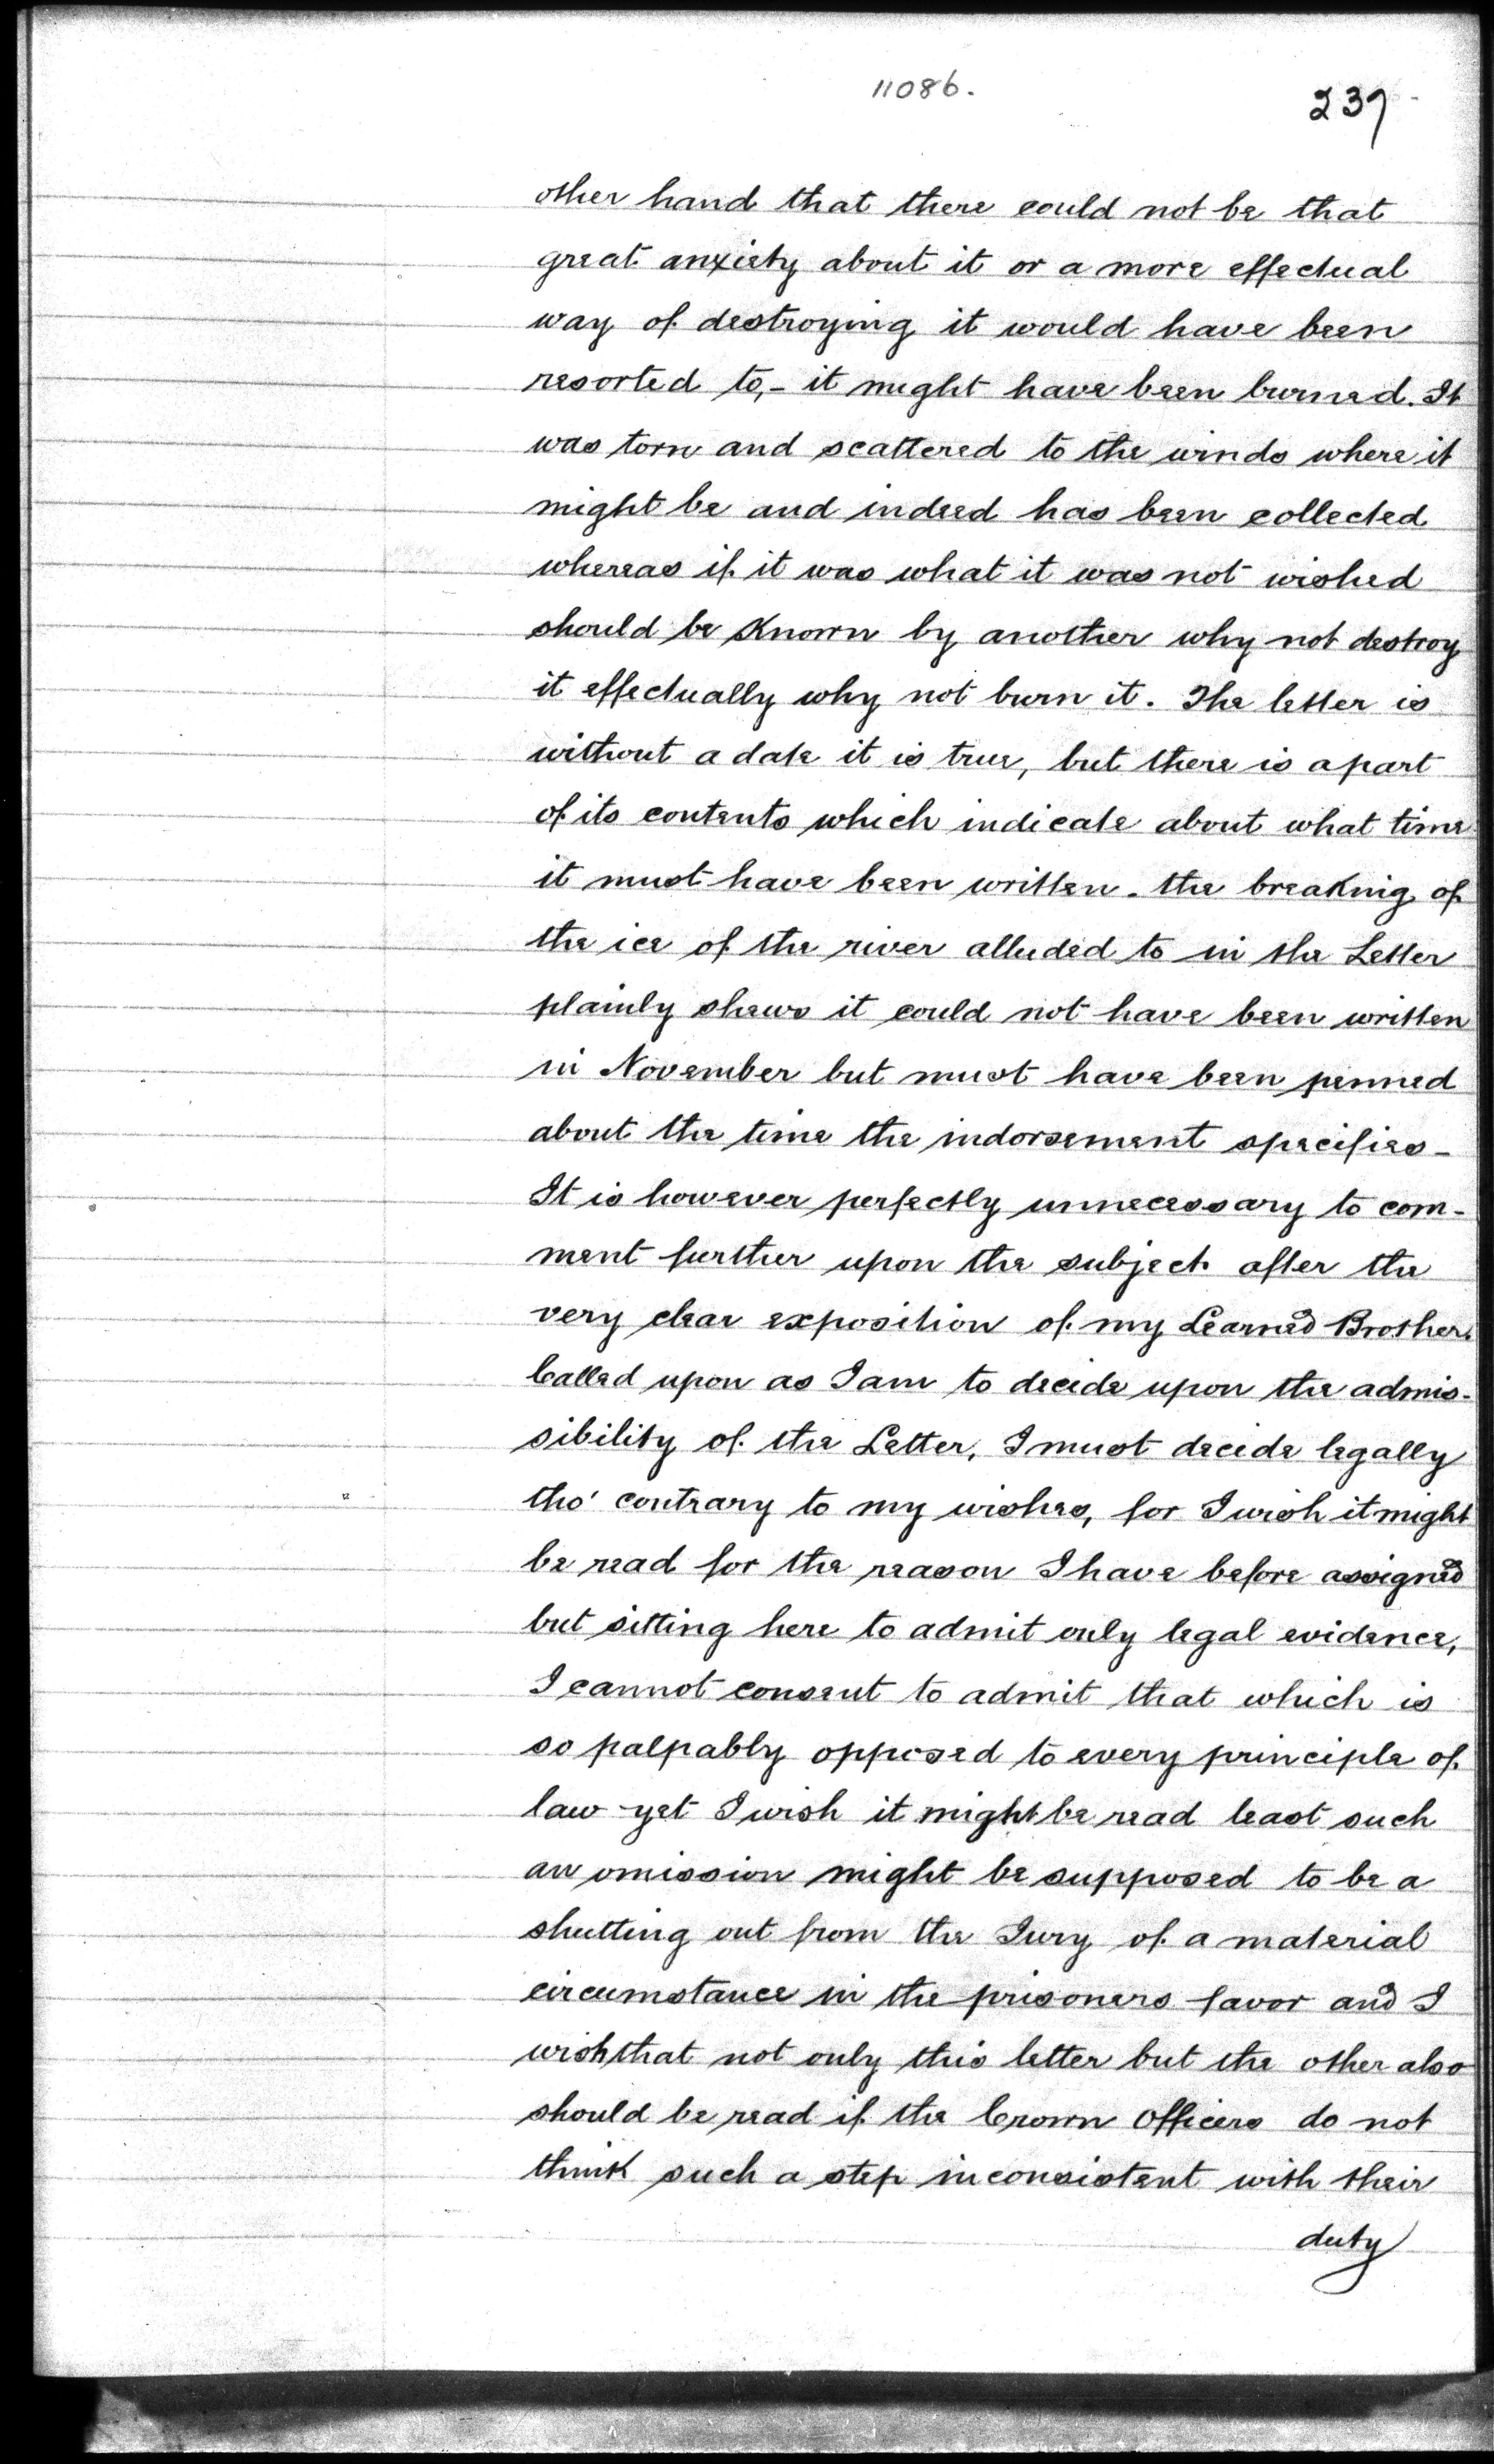 11086.
237
other hand that there could not be that
great anxiety about it or a more effectual
way of destroying it would have been
resorted to,- it might have been burned. It
was torn and scattered to the winds where it
might be and indeed has been collected
whereas if it was what it was not wished
should be Known by another why not destroy
it effectually why not burn it. The letter is
without a date it is true, but there is a part
of its contents which indicate about what time
it must have been written - the breaking of
the ice of the river alluded to in the Letter
plainly shews it could not have been written
in November but must have been penned
about the time the indorsement specifies -
It is however perfectly unnecessary to com-
ment further upon the subject after the
very clear exposition of my Learned Brother.
Called upon as I am to decide upon the admis-
sibility of the Letter, I must decide legally
tho' contrary to my wishes, for I wish it might
be read for the reason I have before assigned
but sitting here to admit only legal evidence,
I cannot consent to admit that which is
so palpably opposed to every principle of
law - yet I wish it might be read least such
an omission might be supposed to be a
shutting out from the Jury of a material
circumstance in the prisoners favor and I
wish that not only this letter but the other also
should be read if the Crown Officers do not
think such a step inconsistent with their
duty